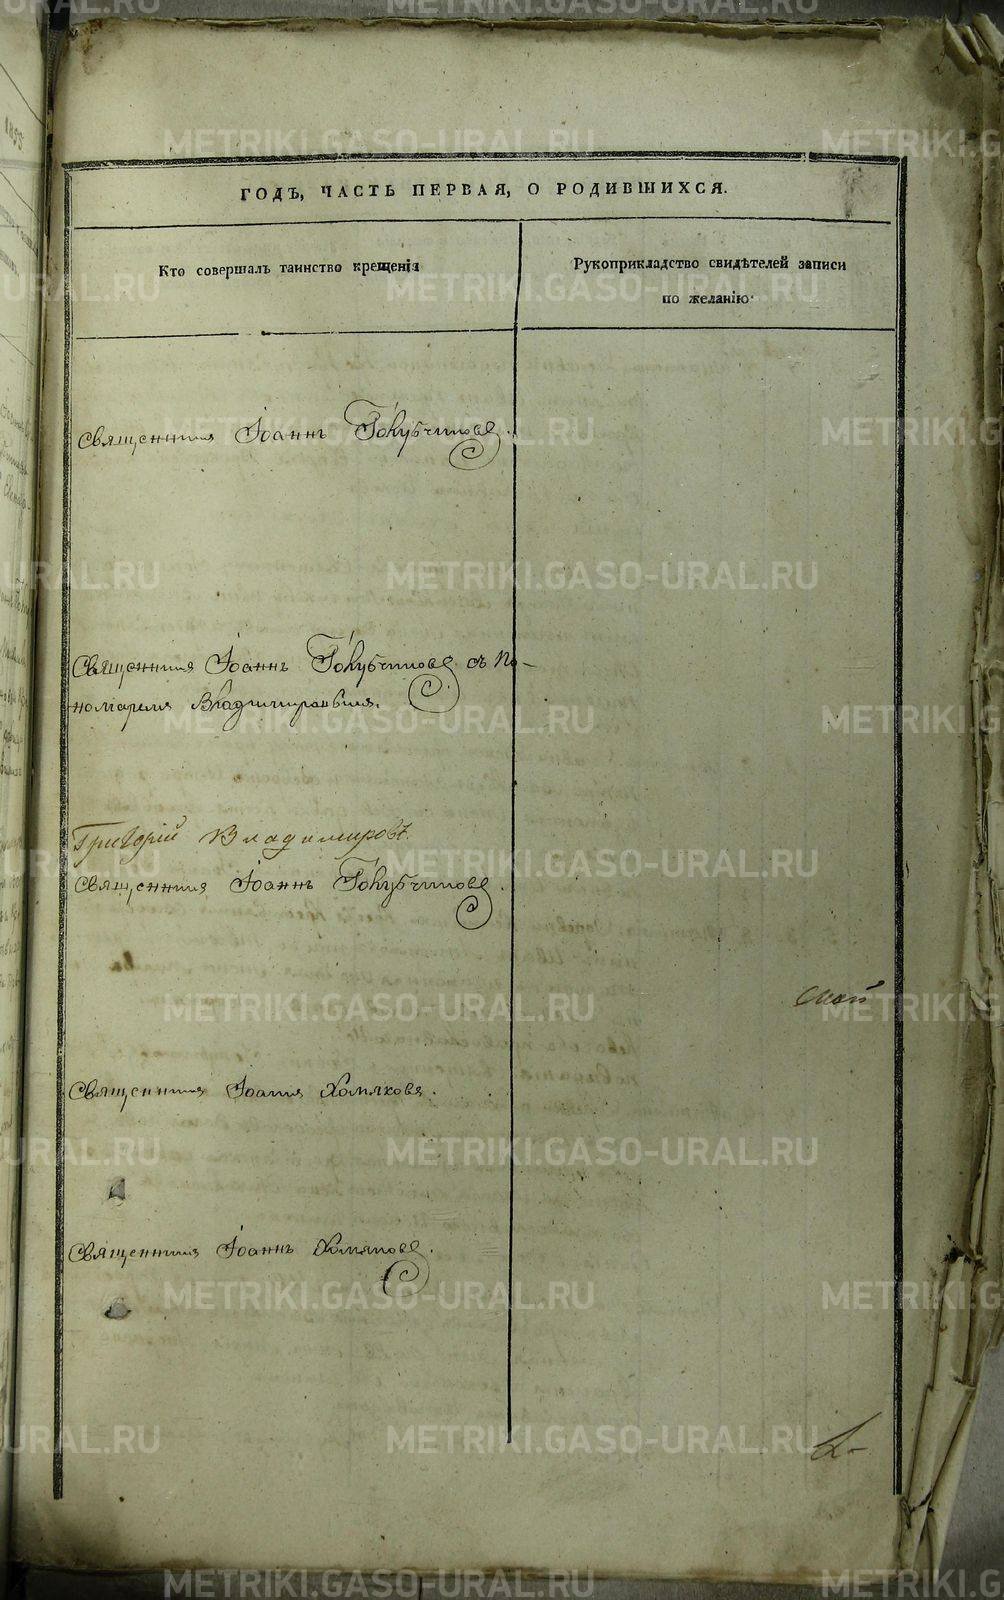 ГОДЪ, ЧАСТЬ ПЕРВАЯ, О РОДИВШИХСЯ.
Кто совершалъ таинство крещенія
Рукоприкладство свидѣтелей записи
по желанію
Священникъ Іоаннъ Голубчиковъ.
Священникъ Іоаннъ Голубчиковъ съ по-
номаремъ Владимировымъ.
Григорій Владимировъ
Священникъ Іоаннъ Голубчиковъ.
Священникъ Іоаннъ Хомяковъ.
Священникъ Іоаннъ Хомяковъ.
METRIKI.GASO-URAL.RU